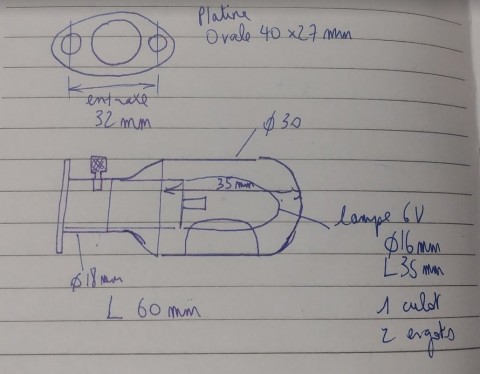 Platine
Ovale 40 x 27 mm
entraxe
32 mm
Ø30
35 mm
lampe 6V
Ø16mm
L 35 mm
Ø18mm
L 60 mm
1 culot
2 ergots